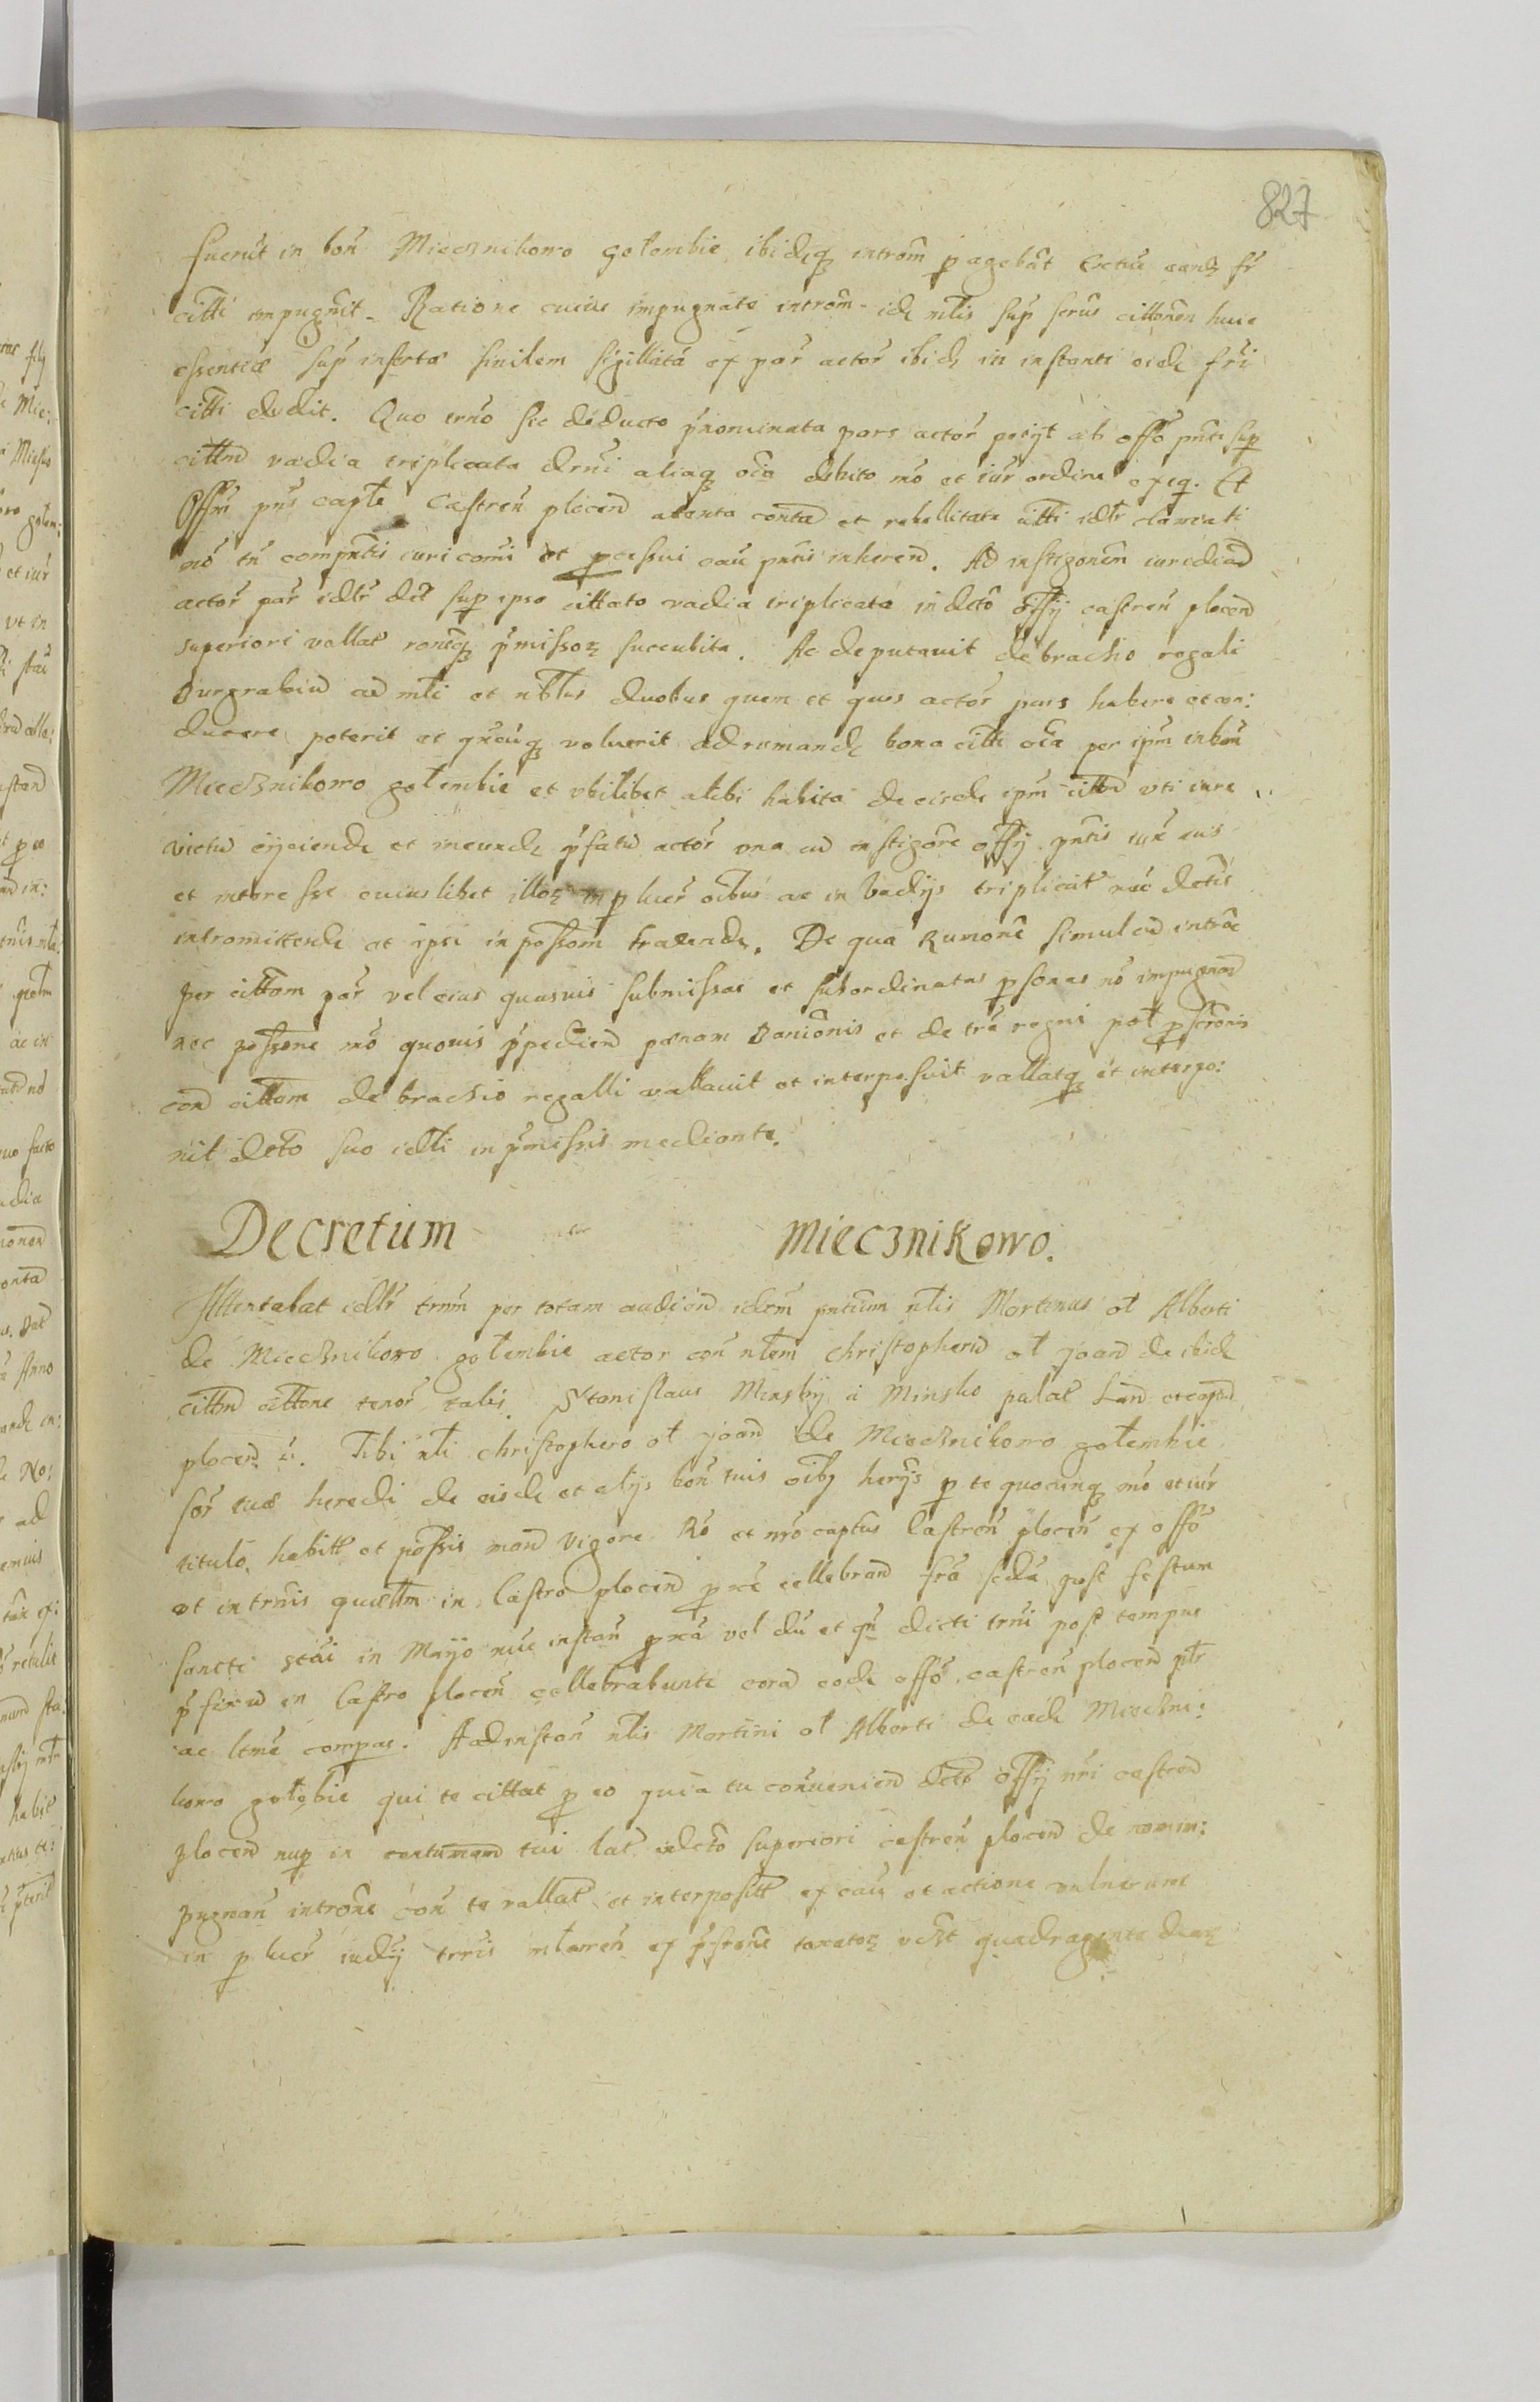 827
fuerut in boñ Miecznikowo golembie ibidqз introm p agebat
citti impugnit. Ratione cuius impugnate introm id nlis sup
essentiæ sup inserta similem sigillatá ex par actor ibid in instanti eid fri
citti dedit. Quo trno sic déducto pnominata pars actor petyt ab offo pnti sup
cittm vadia triplicata drni aliaqз oia debito mo et iur ordine exeq. Et
Offm pns capte Castreñ plocen atenta conta et rebellitate citti idlr clamati
nõ tñ compntis iuri comi et pcessui cau pntis inheren. Ad instigonem iurediad
actor par idlr det sup ipso cittato vadia triplicata in deto offy castreñ plocen
superiori vallat roneqз pmissoꝝ succubita. Ac deputauit de brachio regali
Burgrabiu ad mli et nblus duobus quem et quos actor pars habere et con:
ducere poterit et qncuqз voluerit ad rumand bona citti oia per ipm in boñ
Miecznikowo golembie et vbilibet alibi habita de eisd ipm cittm vti iure
victu eijciend et meund pfatu actor vna cu instigore offy pntis iux ius
et interesse cuiuslibet illoꝝ in p lucr oibus ac in Vadijs triplicat nuc detis
intromittend et ipsi in possom tradend. De qua Rumone simul cu introe
per cittam par vel eius quasuis submissas et subordinatas psonas nõ impugnan
nec possone mõ quouis ppedien pœnam Banionis et de tra regni pol pscronis
con cittam de brachio regalli vallauit et interposuit vallatqз et interpo:
nit deto suo idli in pmissis mediante.
Decretum Miecznikowo.
Attentabat idlr trnm per totam audion idrm pntium nlis Martinus ol Alberti
de Miecznikowo golembie actor con nlem Christopheru ol joan de ibid
cittm cittone tenor talis. Stanislaus Minsky á Minsko palat Lan et capn
plocen ú. Tibi nli christophero ol joan de Miecznikowo golembie
sor tuæ heredi de eisd et alys boñ tuis oibз herijs p te quocunqз mõ et iur
titulo, habitt et possis man vigore Ro et nro captus Castreñ plocen ex offo
et in trnis quælm in Castro plocen pxe cellebran fra scda post festum
sancti stai in Mayo nuc instañ pxa vel du et qñ dicti trni post tempus
pfixu in Castro plocen cellebrabunte cora eod offo castreñ plocen plr
ac ltme compas. Ad instañ nlis Martini ol Alberti de ead Mieczni:
kowo golębie qui te cittat p eo quia tu conueniend deto offy nri castren
plocen nup in contuman tui lat in deto superiori castreñ plocen de nonim:
pugnan introne coñ te vallat et interpositt ex cau et actione vulnerum
in p lucr iudy trris taxatoꝝ vdst quadraginta duaꝝ